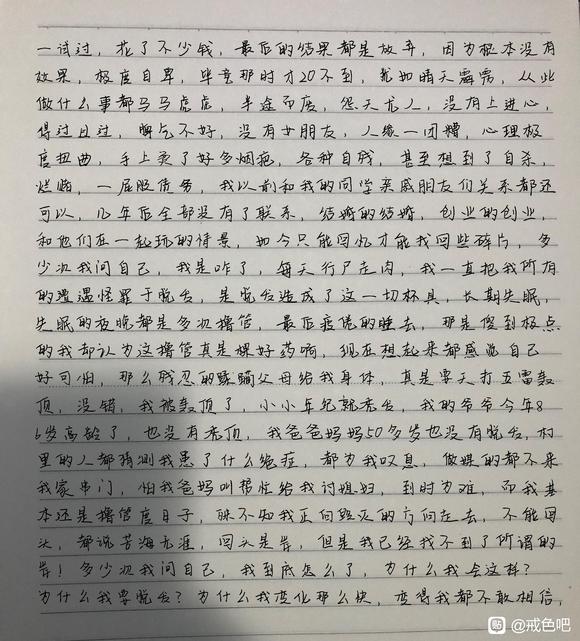 一试过，花了不少钱，最后的结果都是放弃，因为根本没有
效果，极度自卑，毕竟那时才20不到，犹如晴天霹雳，从此
做什么事都马马虎虎，半途而废，怨天尤人，没有上进心，
得过且过，脾气不好，没有女朋友，人缘一团糟，心理极
度扭曲，手上烫了好多烟疤，各种自残，甚至想到了自杀，
烂赌，一屁股债务，我以前和我的同学亲戚朋友们关系都还
可以，几年后全部没有了联系，结婚的结婚，创业的创业，
和他们在一起玩的情景，如今只能回忆才能找回些碎片，多
少次我问自己，我是咋了，每天行尸走肉，我一直把我所有
的遭遇怪罪于脱发，是脱发造成了这一切杯具，长期失眠，
失眠的夜晚都是多次撸管，最后疲倦的睡去，那是傻到极点
的我却认为这撸管真是裸好药啊，现在想起来都感觉自己
好可怕，那么残忍的蹂躏父母给我身体，真是要天打五雷轰
顶，没错，我被轰顶了，小小年纪就秃发，我的爷爷今年8
6岁高龄了，也没有秃顶，我爸爸妈妈50多岁也没有脱发，村
里的人都猜测我患了什么绝症，都为我叹息，做媒的都不来
我家串门，怕我爸妈叫帮忙给我讨媳妇，到时为难，而我基
本还是撸管度日子，殊不知我正向毁灭的方向走去，不能回
头，都说苦海无涯，回头是岸，但是我已经找不到了所谓的
岸！多少次我问自己，我到底怎么了，为什么我会这样？
为什么我要脱发？为什么我变化那么快，变得我都不敢相信，
贴 @戒色吧